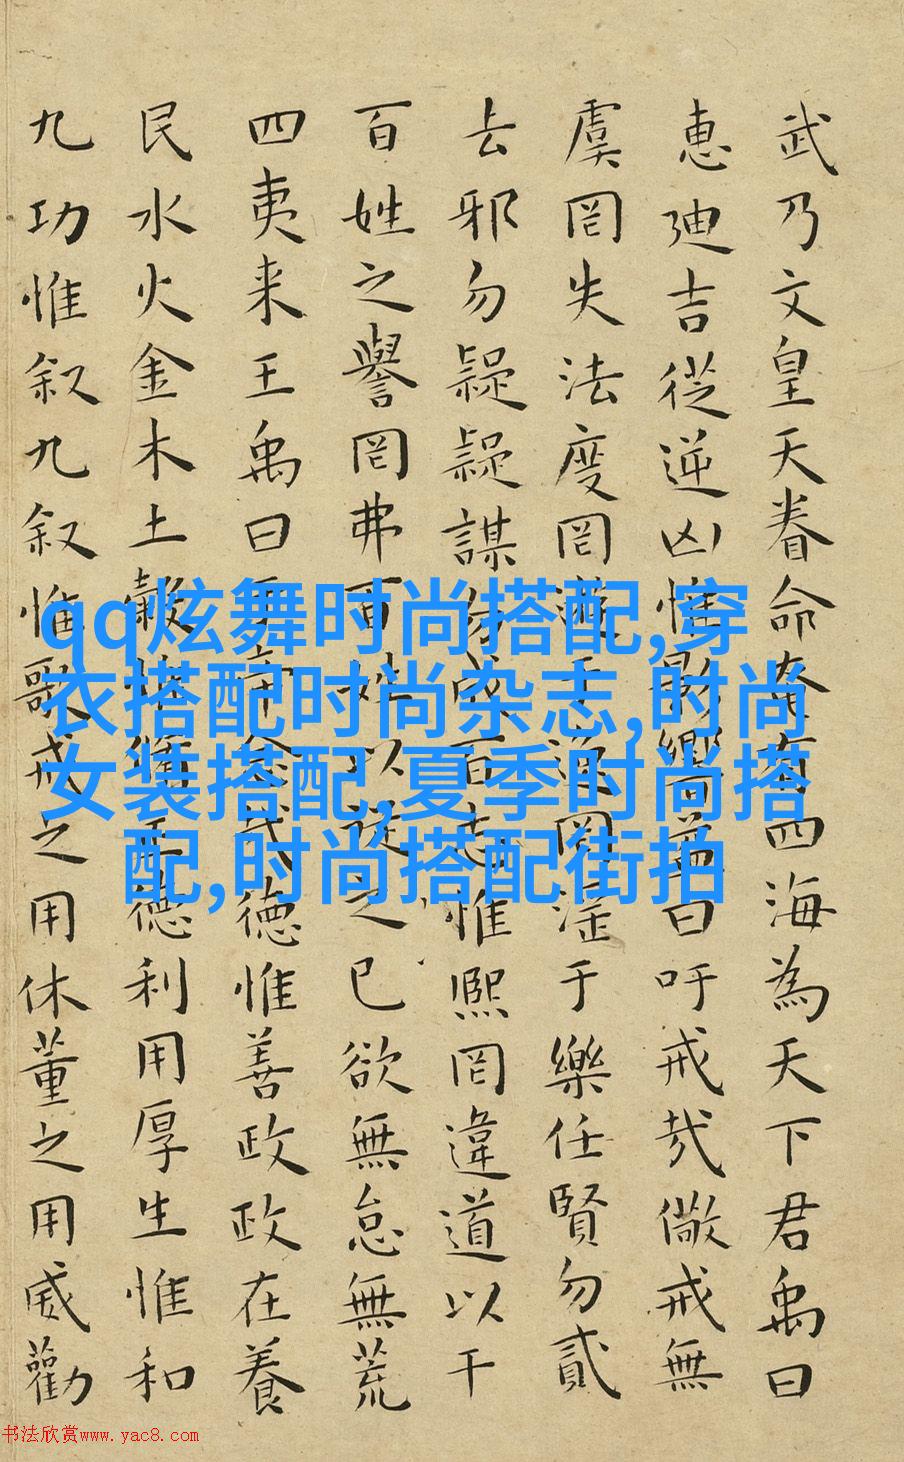 武乃文皇天眷命奄有四海為天下君禹曰
惠迪吉從逆凶惟影響益曰吁戒哉儆戒無
虞罔失法度罔遊于逸罔淫于樂任賢勿貳
去邪勿疑疑謀勿成百志惟熙罔違道以干
百姓之譽罔弗百姓以從之已欲無怠無荒
四夷来王禹曰帝念哉德惟善政政在養
民水火金木土穀惟脩正德利用厚生惟和
九功惟叙九叙惟歌戒之用休董之用威勸
qq炫舞时尚搭配,穿
衣搭配时尚杂志,时尚
女装搭配,夏季时尚搭
配,时尚搭配街拍
书法欣赏www.yac8.com